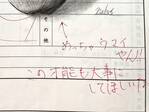 その他
めっちゃ ウマイ
やん!!
この才能も大事に
してほしいな